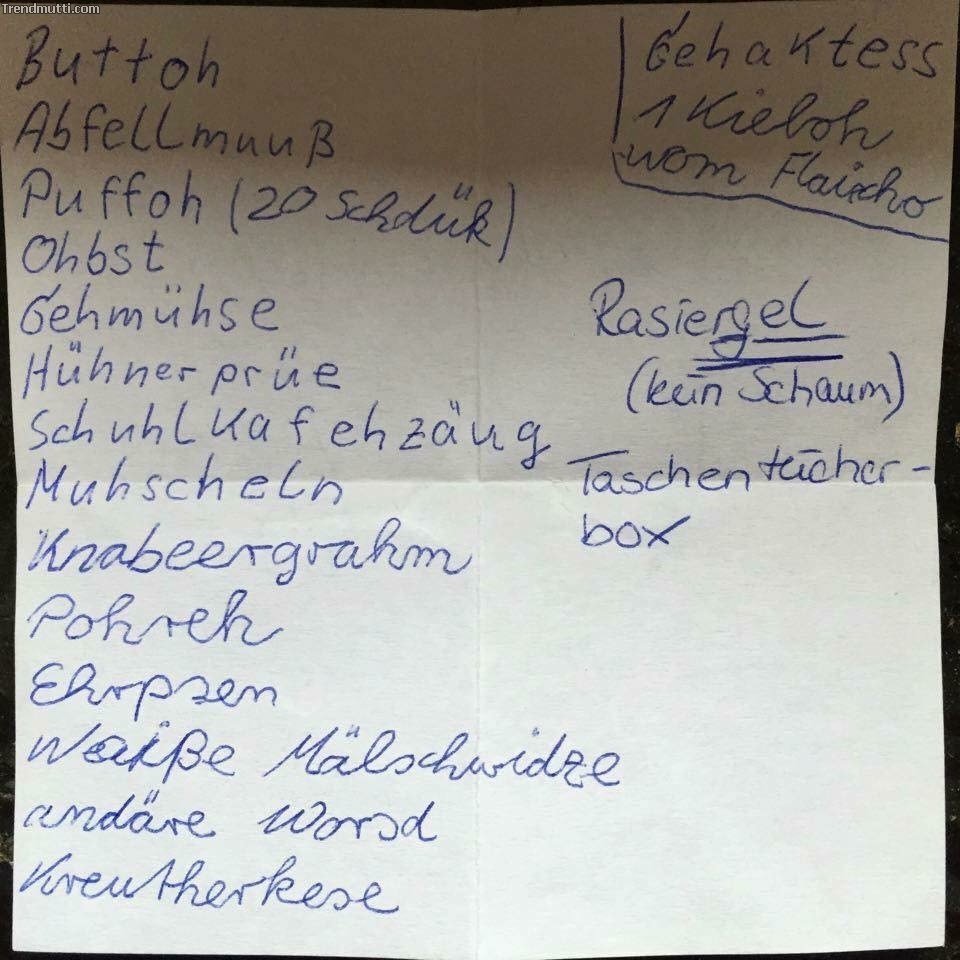 Trendmutti.com
Buttoh
Abfellmuuß
Puffoh (20 Schdük)
Ohbst
Gehmühse
Hühnerprüe
Schuhlkafehzäug
Muhscheln
Knabeergrahm
Pohreh
Ehrpsen
Waiße Mälschwidze
andäre Worsd
Kreutherkese
Gehaktess
1 Kieloh
wom Flaischo
Rasiergel
(kein Schaum)
Taschentücher-
box